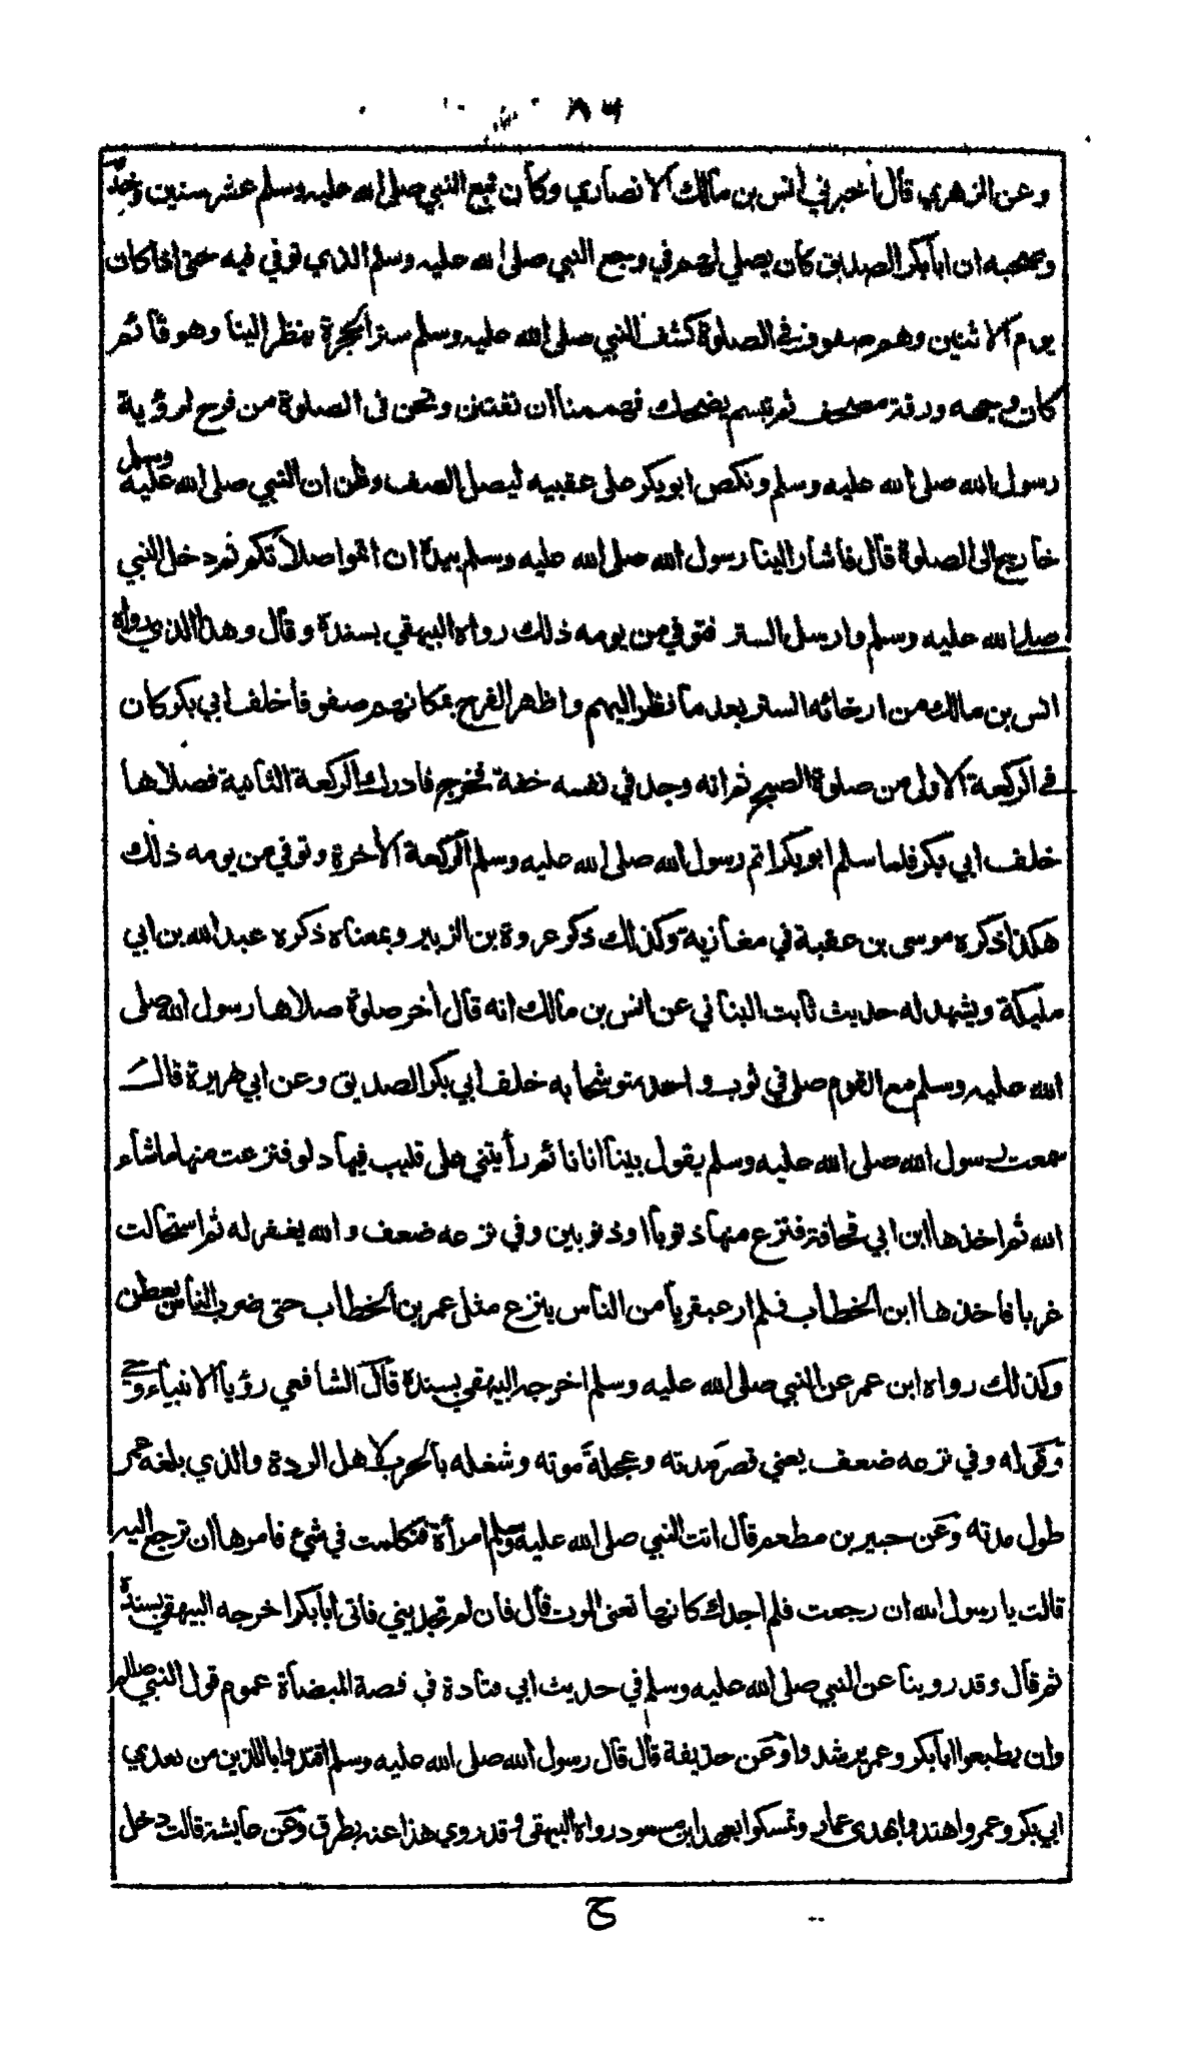 ٨٦
وعن الزهري قال أخبرني أنس بن مالك الانصاري وكان تبع النبي صلى الله عليه وسلم عشر سنين وخدمه
وصحبه ان ابابكر الصديق كان يصلي لهم في وجع النبي صلى الله عليه وسلم الذي توفي فيه حتى اذا كان
يوم الاثنين وهم صفوف في الصلوة كشف النبي صلى الله عليه وسلم ستر الحجرة ينظر الينا وهو قائم
كان وجهه ورقة مصحف ثم تبسم يضحك فهممنا ان نفتتن ونحن في الصلوة من فرح لرؤية
رسول الله صلى الله عليه وسلم ونكص ابوبكر على عقبيه ليصل الصف وظن ان النبي صلى الله عليه وسلم
خارج الى الصلوة قال فاشار الينا رسول الله صلى الله عليه وسلم بيده ان اتموا صلاتكم ثم دخل النبي
صلى الله عليه وسلم وارسل الستر فتوفي من يومه ذلك رواه البيهقي بسنده وقال وهذا الذي رواه
انس بن مالك من ارخائه الستر بعد ما نظر اليهم واظهر الفرح بمكانهم صفوفا خلف ابي بكر كان
في الركعة الاولى من صلوة الصبح ثم انه وجد في نفسه خفة فخرج فادرك الركعة الثانية فصلاها
خلف ابي بكر فلما سلم ابوبكر اتم رسول الله صلى الله عليه وسلم الركعة الأخرة وتوفي من يومه ذلك
هكذا ذكره موسى بن عقبة في مغازيه وكذلك ذكر عروة بن الزبير وبمعناه ذكره عبد الله بن ابي
مليكة ويشهد له حديث ثابت البناني عن انس بن مالك انه قال أخر صلوة صلاها رسول الله صلى
الله عليه وسلم مع القوم صلى في ثوب واحد متوشحا به خلف ابي بكر الصديق وعن ابي هريرة قال
سمعت رسول الله صلى الله عليه وسلم يقول بينا انا نائم رأيتني على قليب فيها دلو فنزعت منها ما شاء
الله ثم اخذها ابن ابي قحافة فنزع منها ذنوبا او ذنوبين وفي نزعه ضعف والله يغفر له ثم استحالت
غربا فاخذها ابن الخطاب فلم ار عبقريا من الناس ينزع مثل عمر بن الخطاب حتى ضرب الناس بعطن
وكذلك رواه ابن عمر عن النبي صلى الله عليه وسلم اخرجه البيهقي بسنده قال الشافعي رؤيا الانبياء وحي
وقوله وفي نزعه ضعف يعني قصر مدته وعجلة موته وشغله بالحرب لاهل الردة والذي بلغه عمر
طول مدته وعن جبير بن مطعم قال اتت النبي صلى الله عليه وسلم امرأة فتكلمت في شيء فامرها ان ترجع اليه
قالت يا رسول الله ان رجعت فلم اجدك كانها تعني الموت قال فان لم تجديني فاتى ابابكر اخرجه البيهقي بسنده
ثم قال وقد روينا عن النبي صلى الله عليه وسلم في حديث ابي قتادة في قصة الميضأة عموم قول النبي صللم
وان يطيعوا ابابكر وعمر يرشدوا وعن حذيفة قال قال رسول الله صلى الله عليه وسلم اقتدوا باللذين من بعدي
ابي بكر وعمر واهتدوا بهدى عمار وتمسكوا بعهد ابن مسعود رواه البيهقي وقد روي هذا عنه بطرق وعن عايشة قالت دخل
ح